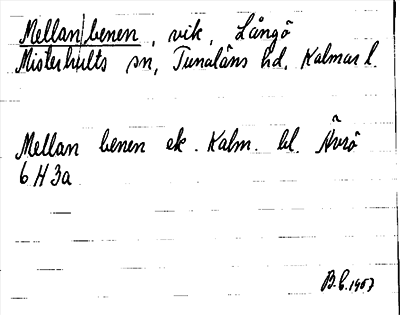 Mellan|benen, vik, Långö
Misterhults sn, Tunaläns hd, Kalmar l.
Mellan benen ek. Kalm. bl. Ävrö
6 H 3a
B.C. 1957